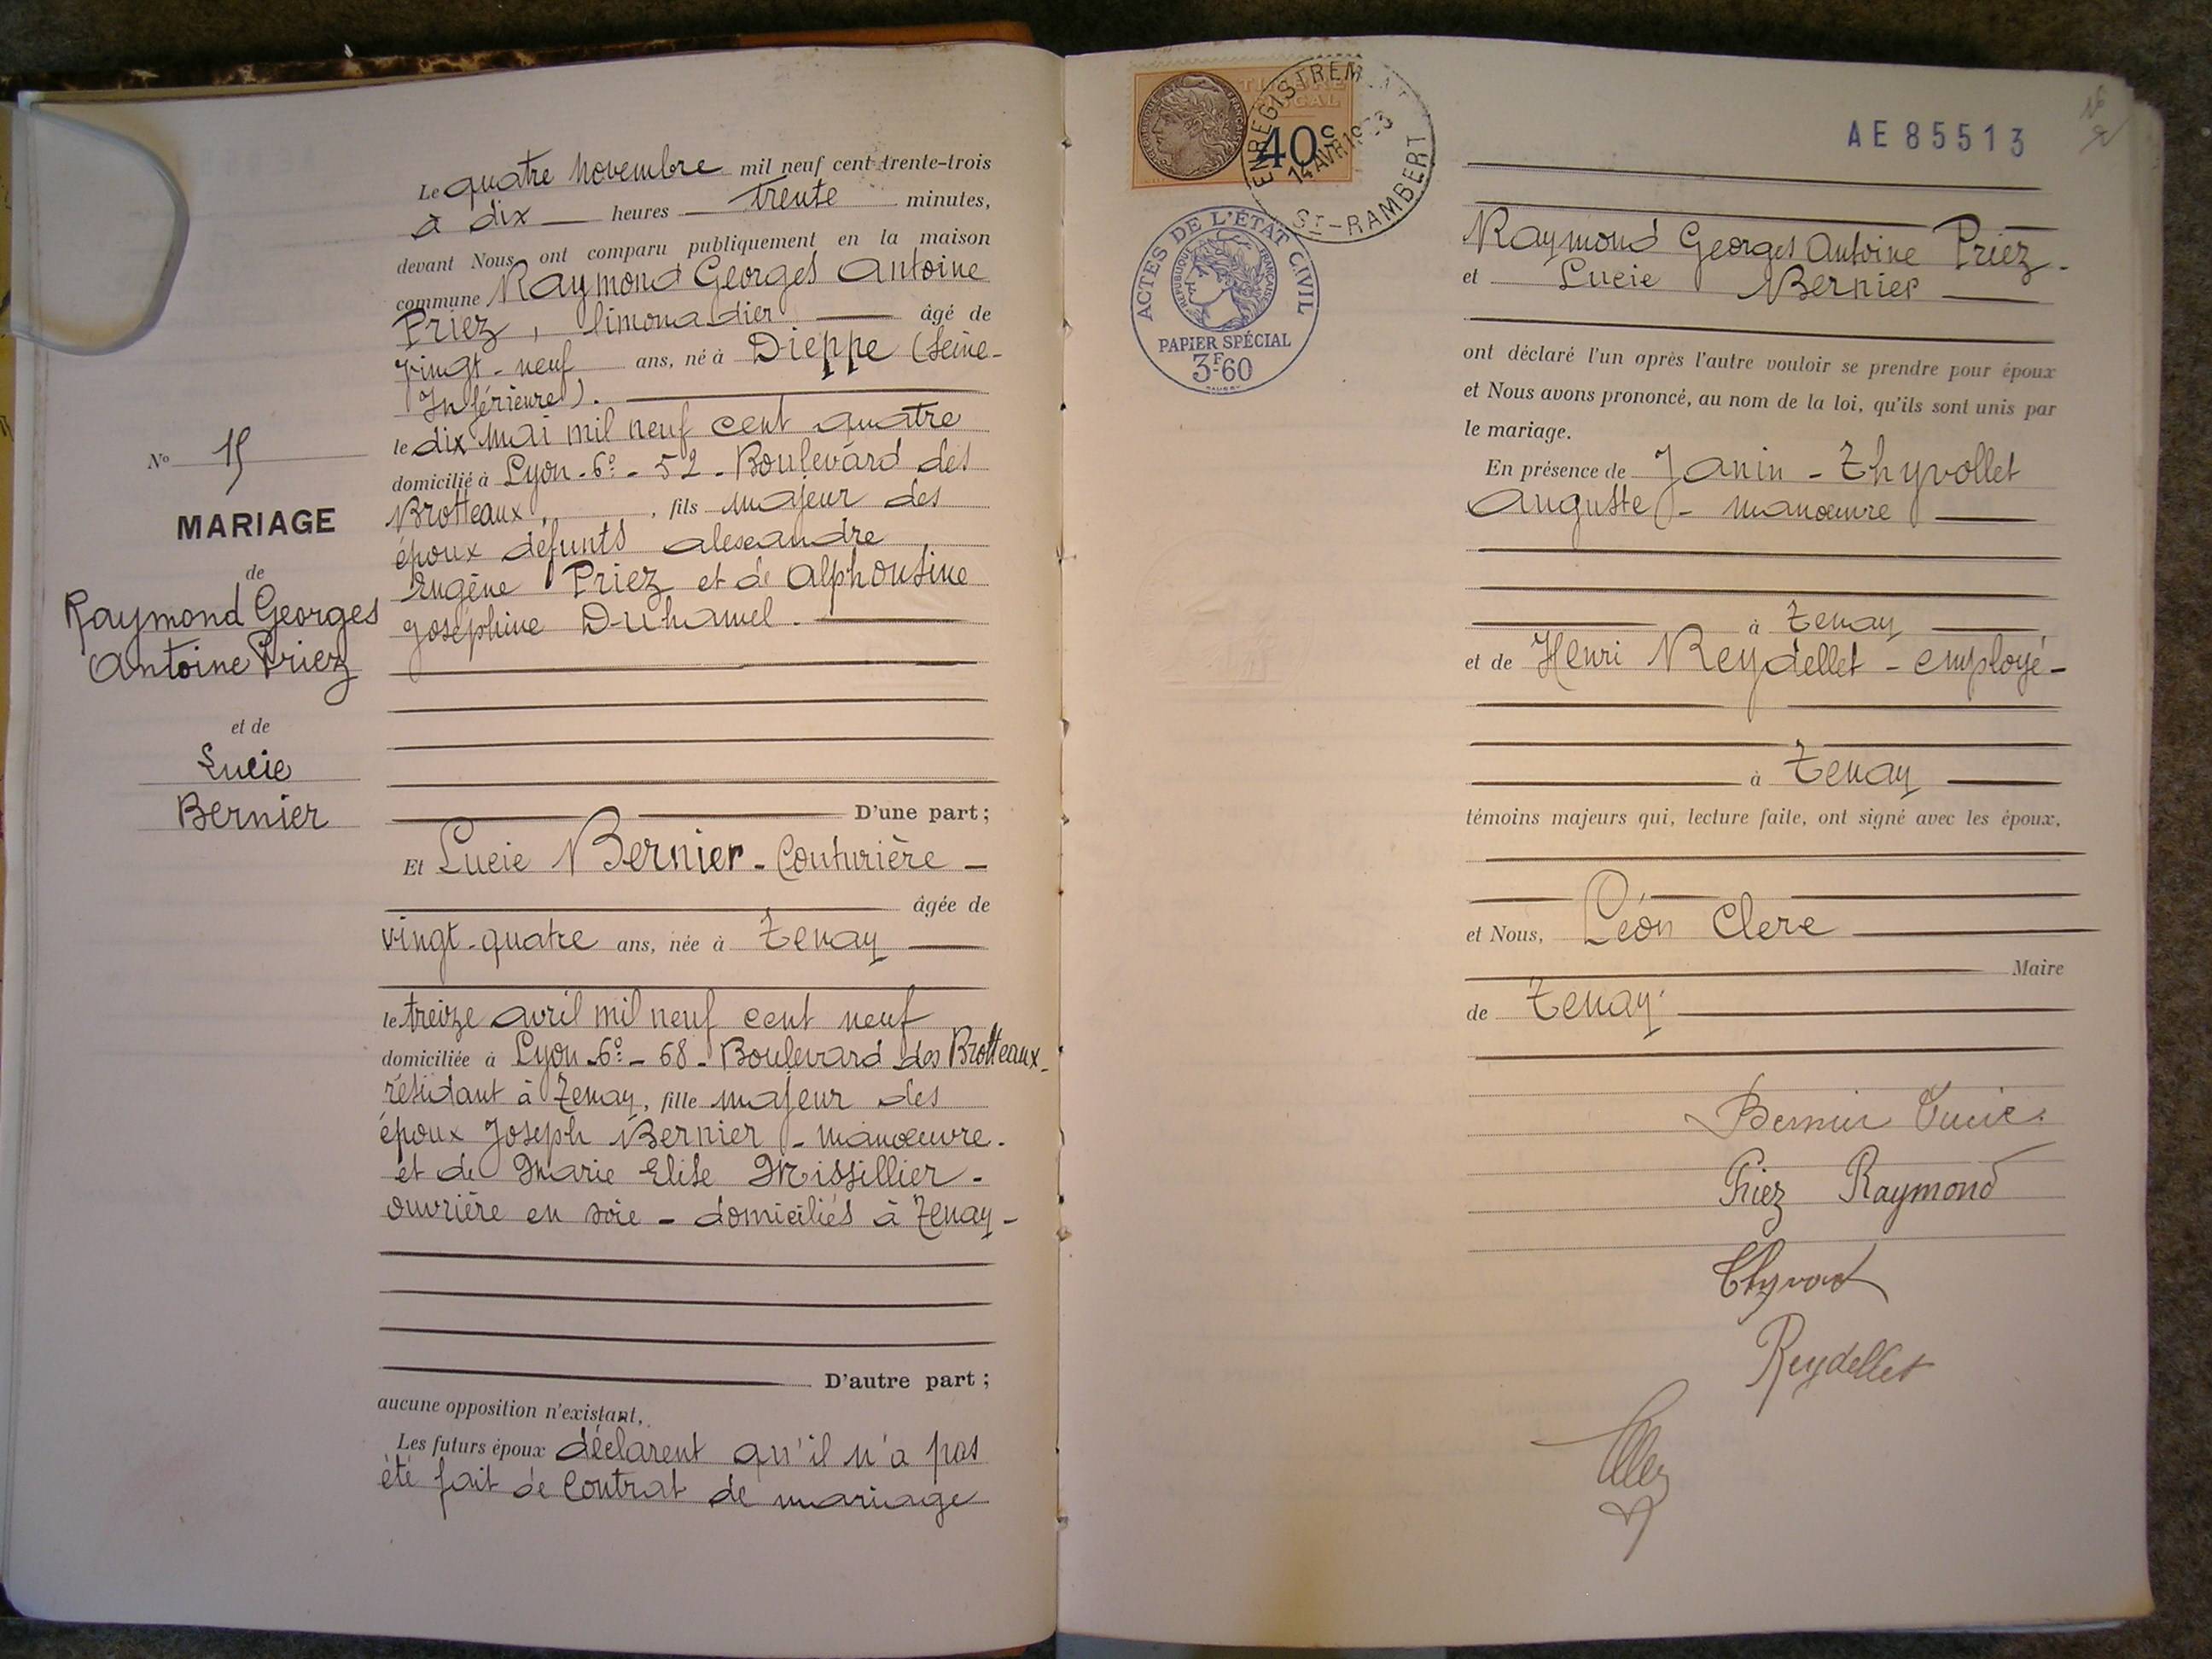 Le quatre Novembre mil neuf cent trente-trois
à dix heures trente minutes,
devant Nous ont comparu publiquement en la maison
commune Raymond Georges Antoine
Priez, limonadier âgé de
vingt-neuf ans, né à Dieppe (Seine-
Inférieure).
le dix mai mil neuf cent quatre
domicilié à Lyon-6e-52-Boulevard des
Brotteaux, fils majeur des
époux défunts Alexandre
Eugène Priez et de Alphonsine
Joséphine Duhamel.
D'une part;
Et Lucie Bernier-Couturière-
âgée de
vingt-quatre ans, née à Tenay
le treize avril mil neuf cent neuf
domiciliée à Lyon-6e-68-Boulevard des Brotteaux-
résidant à Tenay, fille majeur des
époux Joseph Bernier-manœuvre-
et de Marie Elise Missillier-
ouvrière en soie-domiciliés à Tenay-
D'autre part;
aucune opposition n'existant,
Les futurs époux déclarent qu'il n'a pas
été fait de Contrat de mariage
No 15
MARIAGE
de
Raymond Georges
Antoine Priez
et de
Lucie
Bernier
TIMBRE
FISCAL
40c
ENREGISTREMENT
14 AVR 19
ST-RAMBERT
ACTES DE L'ÉTAT CIVIL
RÉPUBLIQUE FRANÇAISE
PAPIER SPÉCIAL
3F60
AE 85513
Raymond Georges Antoine Priez-
et Lucie Bernier
ont déclaré l'un après l'autre vouloir se prendre pour époux
et Nous avons prononcé, au nom de la loi, qu'ils sont unis par
le mariage.
En présence de Janin-Thyvollet
Auguste-manœuvre
à Tenay
et de Henri Reydellet-employé-
à Tenay
témoins majeurs qui, lecture faite, ont signé avec les époux,
et Nous, Léon Clerc
Maire
de Tenay
Bernier Lucie.
Priez Raymond
Reydellet